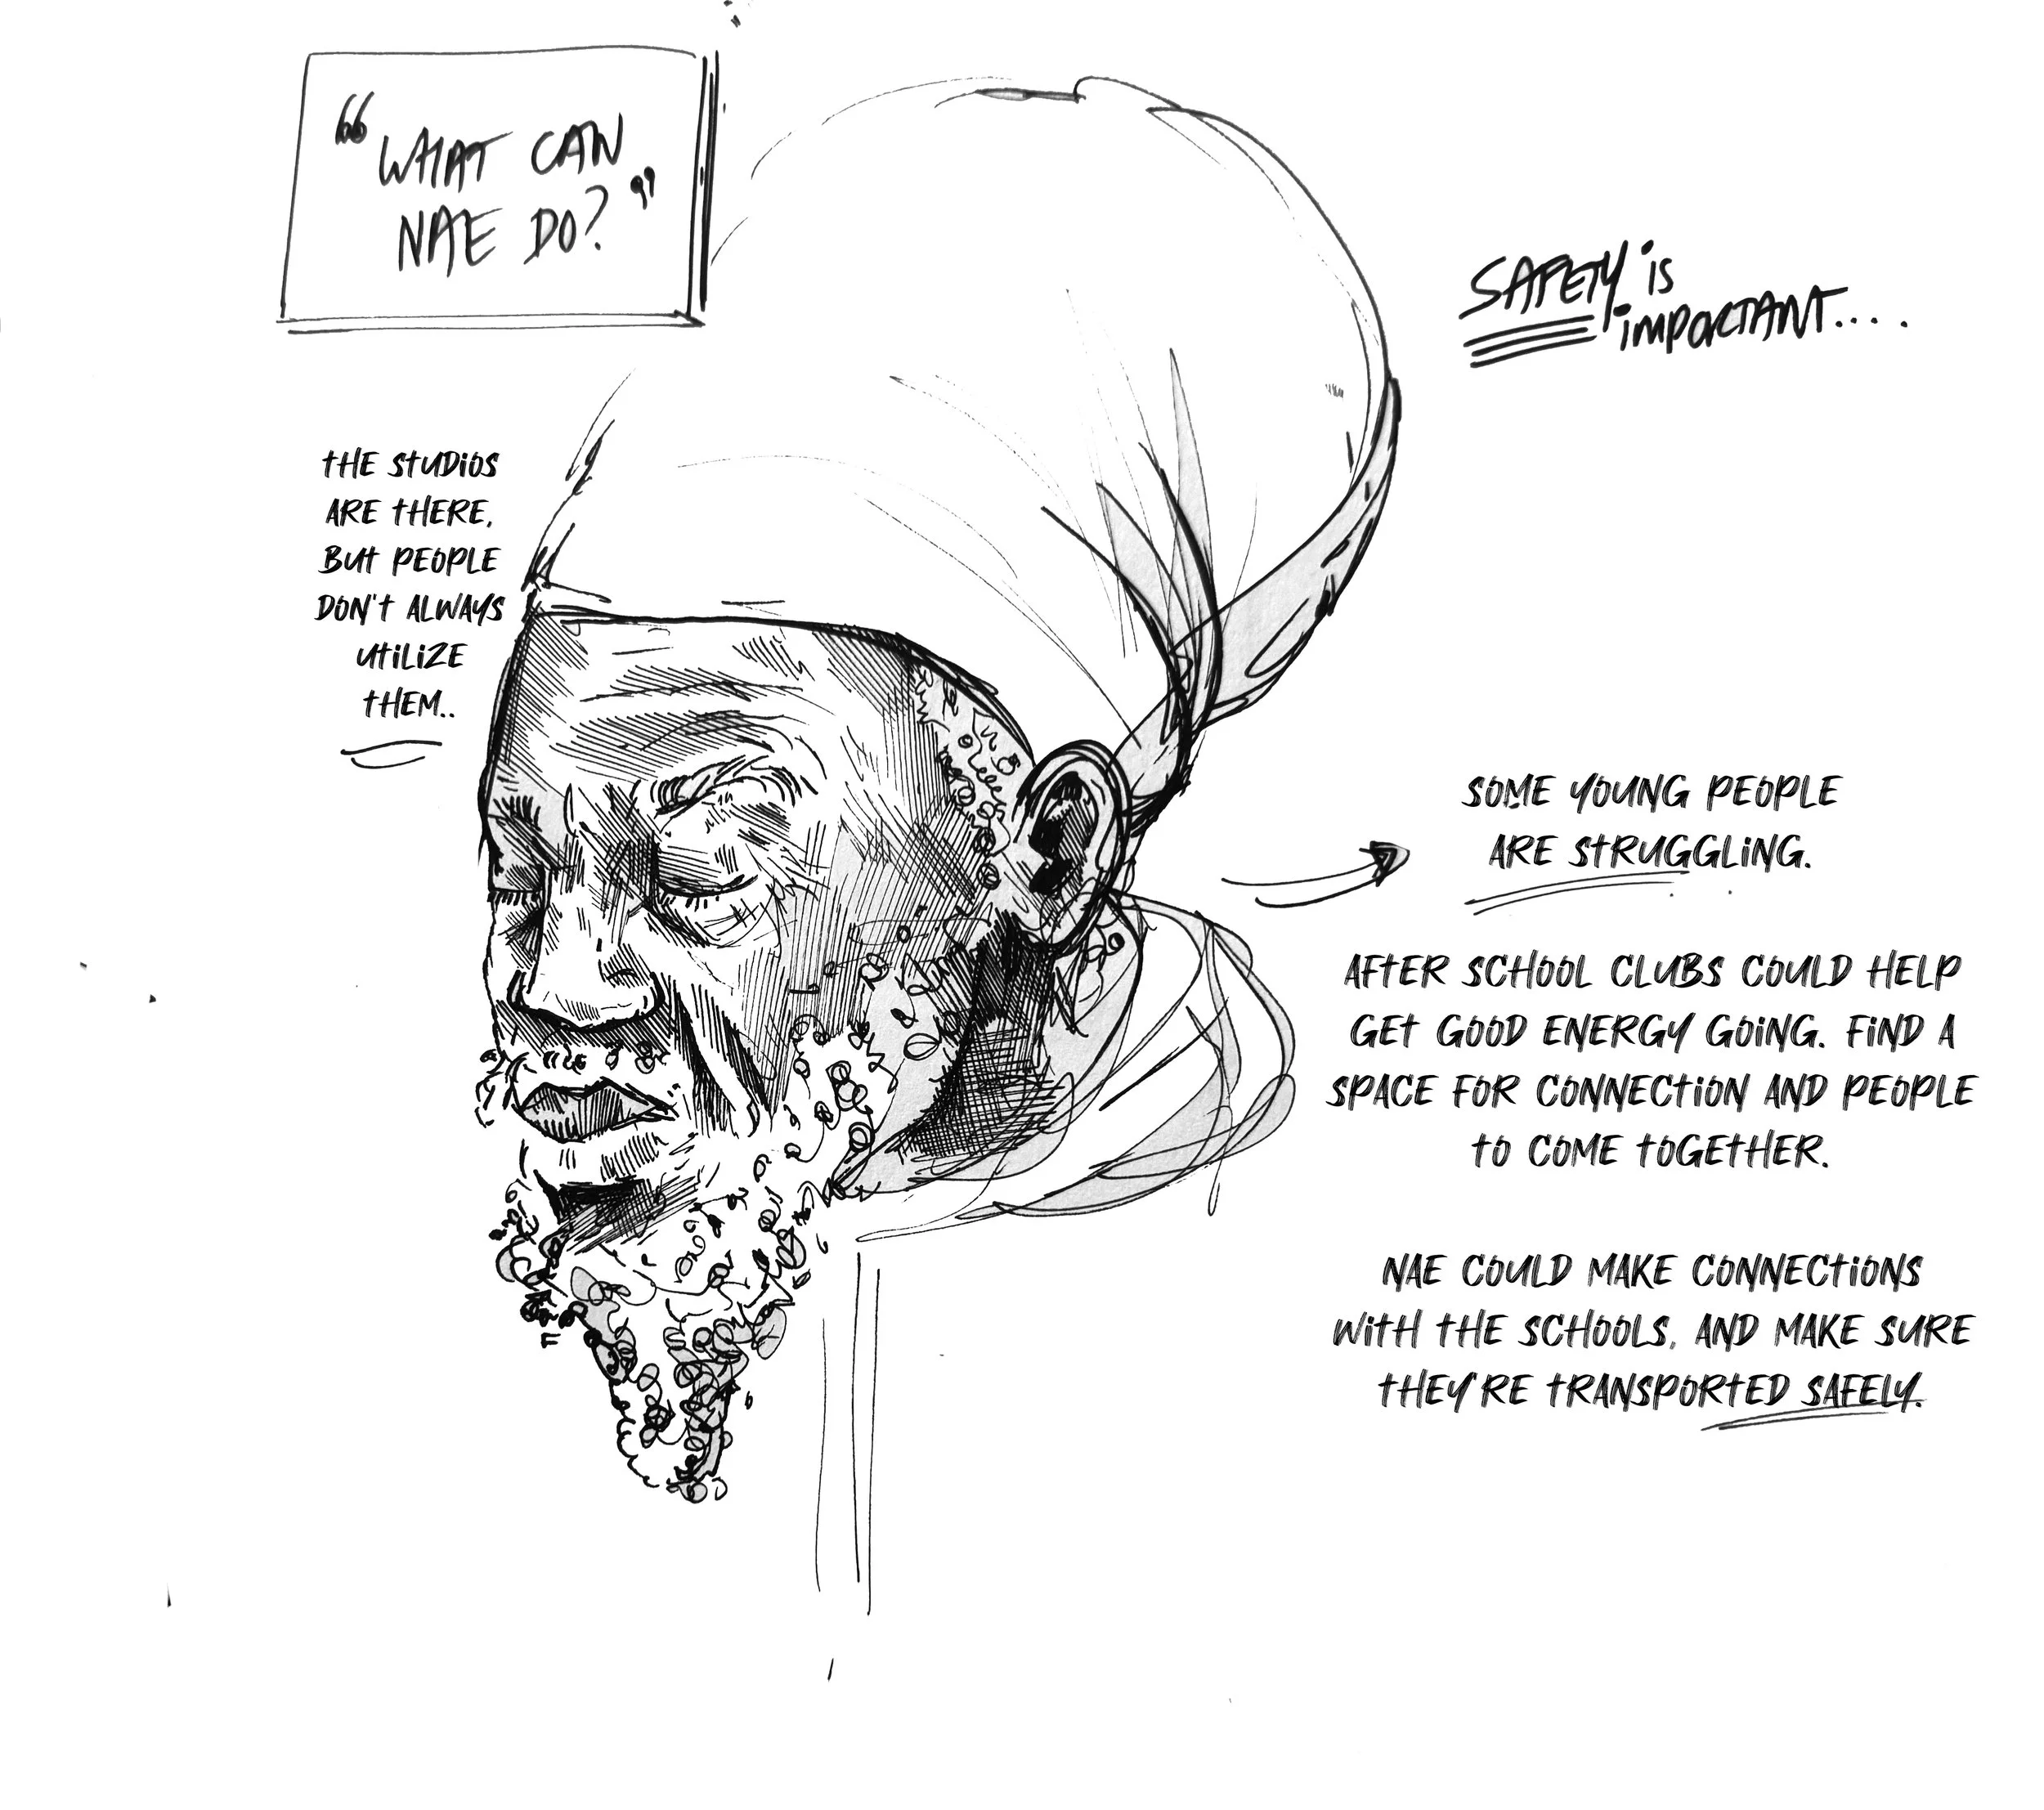 “WHAT CAN
NAE DO?”
SAFETY is
imPORTANT....
THE STUDIOS
ARE THERE,
BUT PEOPLE
DON'T ALWAYS
UTILIZE
THEM..
SOME YOUNG PEOPLE
ARE STRUGGLING.
AFTER SCHOOL CLUBS COULD HELP
GET GOOD ENERGY GOING. FIND A
SPACE FOR CONNECTION AND PEOPLE
TO COME TOGETHER.
NAE COULD MAKE CONNECTIONS
WITH THE SCHOOLS, AND MAKE SURE
THEY'RE TRANSPORTED SAFELY.